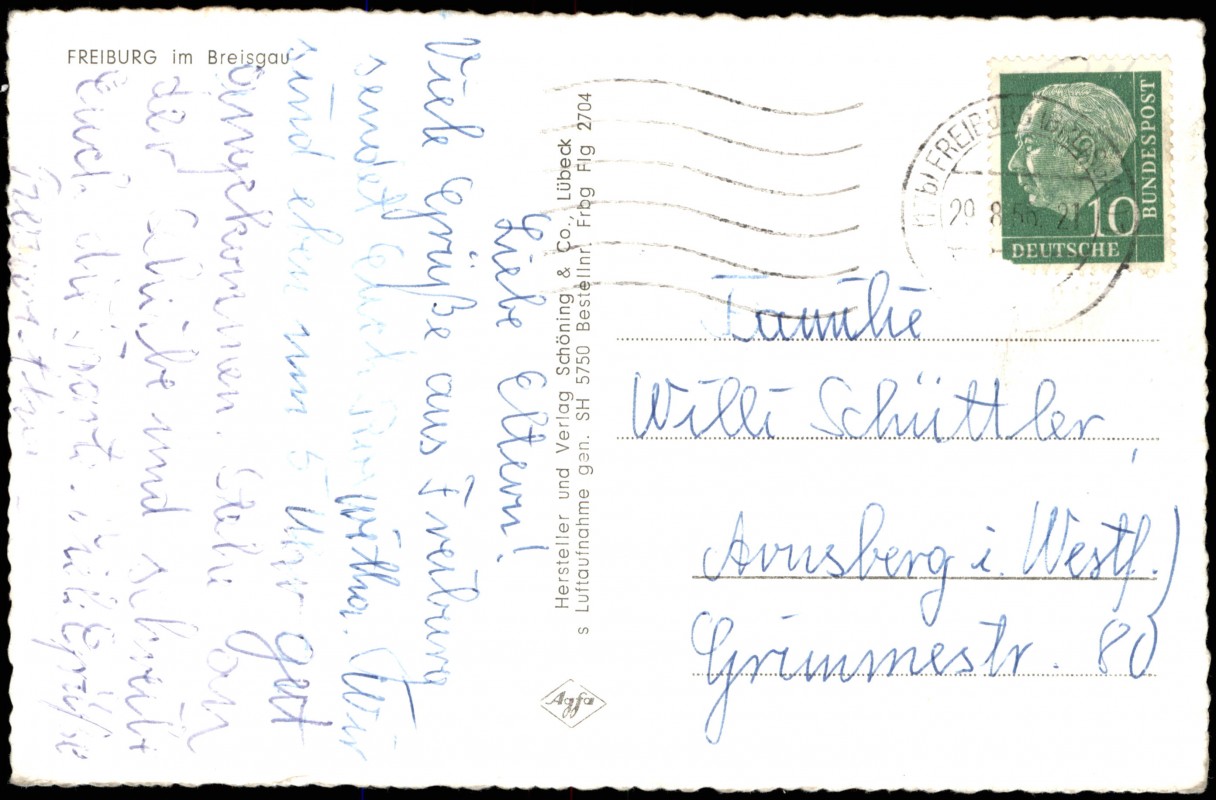 FREIBURG im Breisgau
Liebe Eltern!
Viele Grüße aus Freiburg
sendet Euch Roswitha. Wir
sind eben um 5 Uhr gut
angekommen. Stehe
der und schreibe
Euch die Karte. Viele Grüße
Hersteller und Verlag Schöning & Co., Lübeck
s Luftaufnahme gen. SH 5750 BestellNr. Frbg Flg 2704
Agfa
FREIBURG
29.8.56.-21
10
DEUTSCHE
BUNDESPOST
Familie
Willi Schüttler,
Arnsberg i. Westf.)
Grimmestr. 80